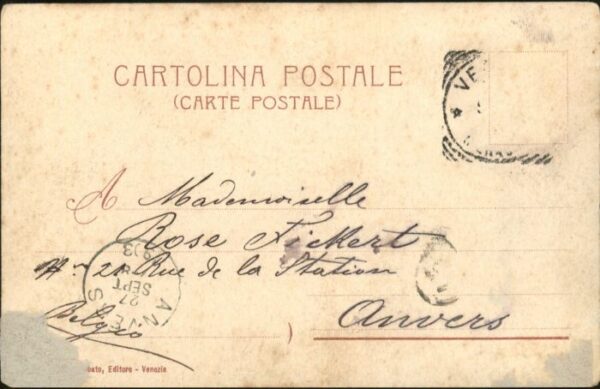 CARTOLINA POSTALE
(CARTE POSTALE)
VE
A Mademoiselle
Rose Fickert
21 Rue de la Station
Anvers
Belgio
ANVE S
27
SEPT
, Editore - Venezia